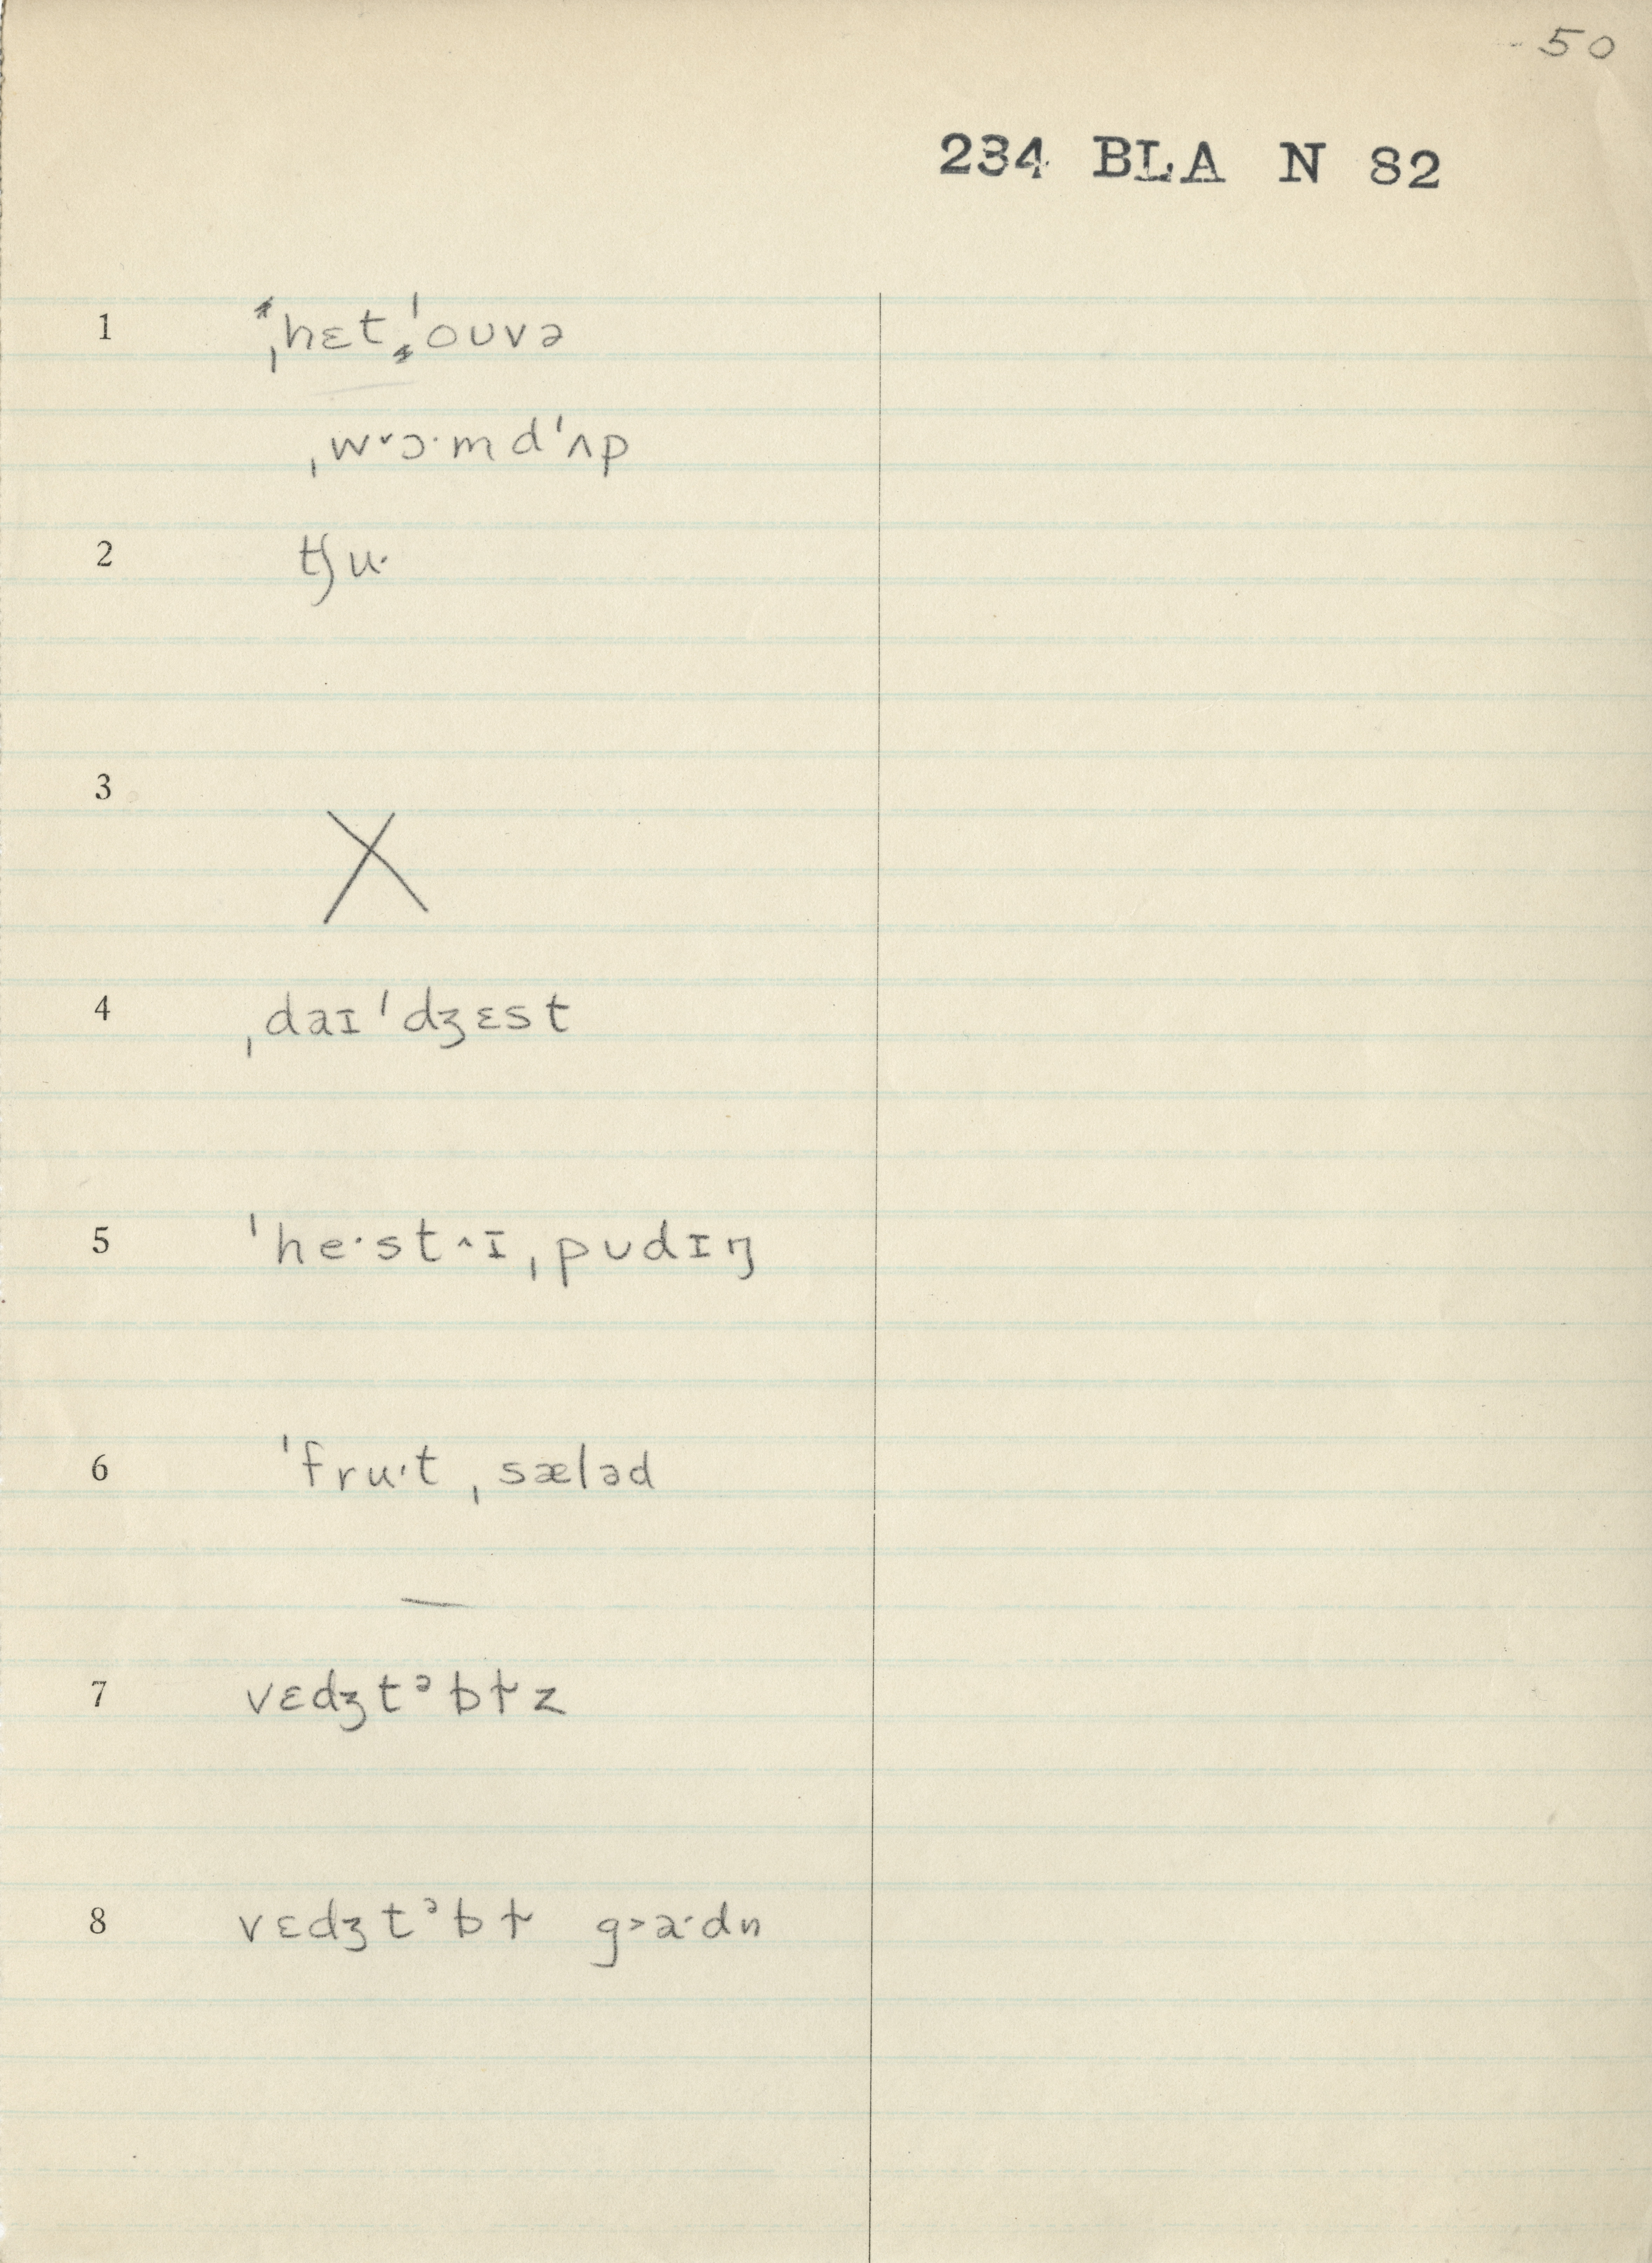 50
234 BLA N 82
1 ˌhɛtˈoʊvə
ˌwᵛɔ·mdˈʌp
2 tʃu·
3 X
4 ˌdaɪˈdʒɛst
5 ˈhe·st^ɪˌpʊdɪŋ
6 ˈfru·tˌsæləd
7 vɛdʒtᵊbɫz
8 vɛdʒtᵊbɫ g>a·dn